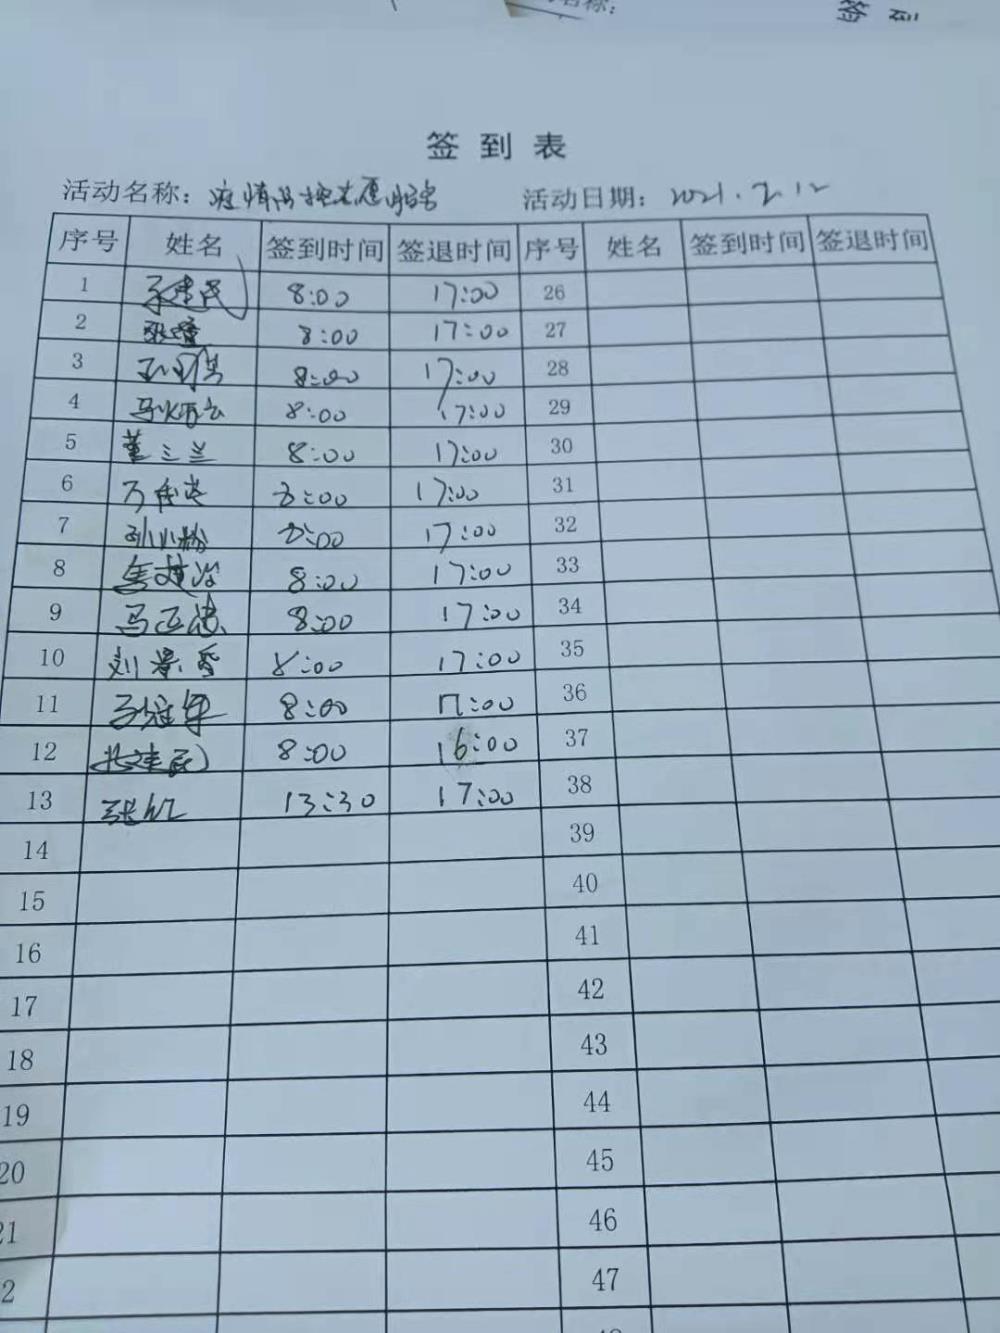 名称:
签 到
签 到 表
活动名称: 疫情防控志愿服务 活动日期: 2021.2.12
序号 姓名 签到时间 签退时间 序号 姓名 签到时间 签退时间
1 8:00 17:00 26
2 8:00 17:00 27
3 8:00 17:00 28
4 8:00 17:00 29
5 董三兰 8:00 17:00 30
6 8:00 17:00 31
7 孙小粉 8:00 17:00 32
8 8:00 17:00 33
9 8:00 17:00 34
10 8:00 17:00 35
11 8:00 17:00 36
12 8:00 16:00 37
13 13:30 17:00 38
14 39
15 40
16 41
17 42
18 43
19 44
20 45
21 46
2 47